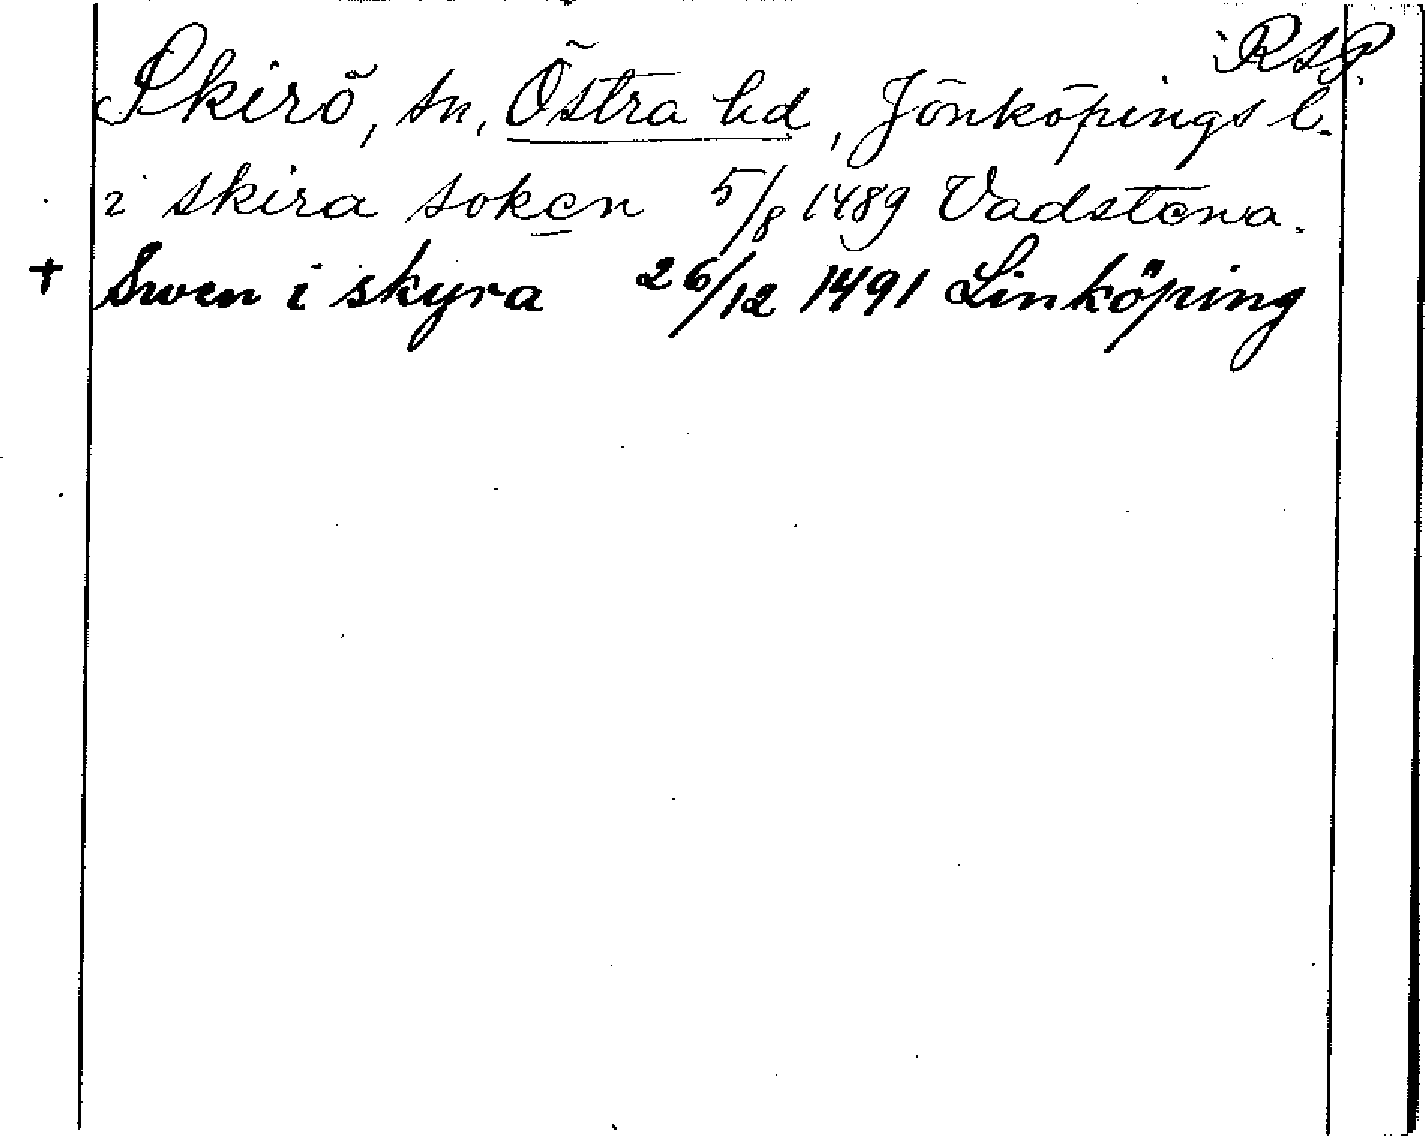 RAP.
Skirö, sn, Östra hd, Jönköpings l.
i skira soken 5/8 1489 Vadstena.
+ Swen i skyra 26/12 1491 Linköping